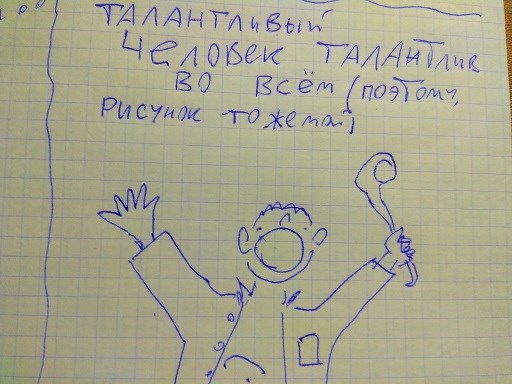 ТАЛАНТЛИВЫЙ
ЧЕЛОВЕК ТАЛАНТЛИВ
ВО ВСЁМ (ПОЭТОМУ,
РИСУНОК ТОЖЕ МОЙ)